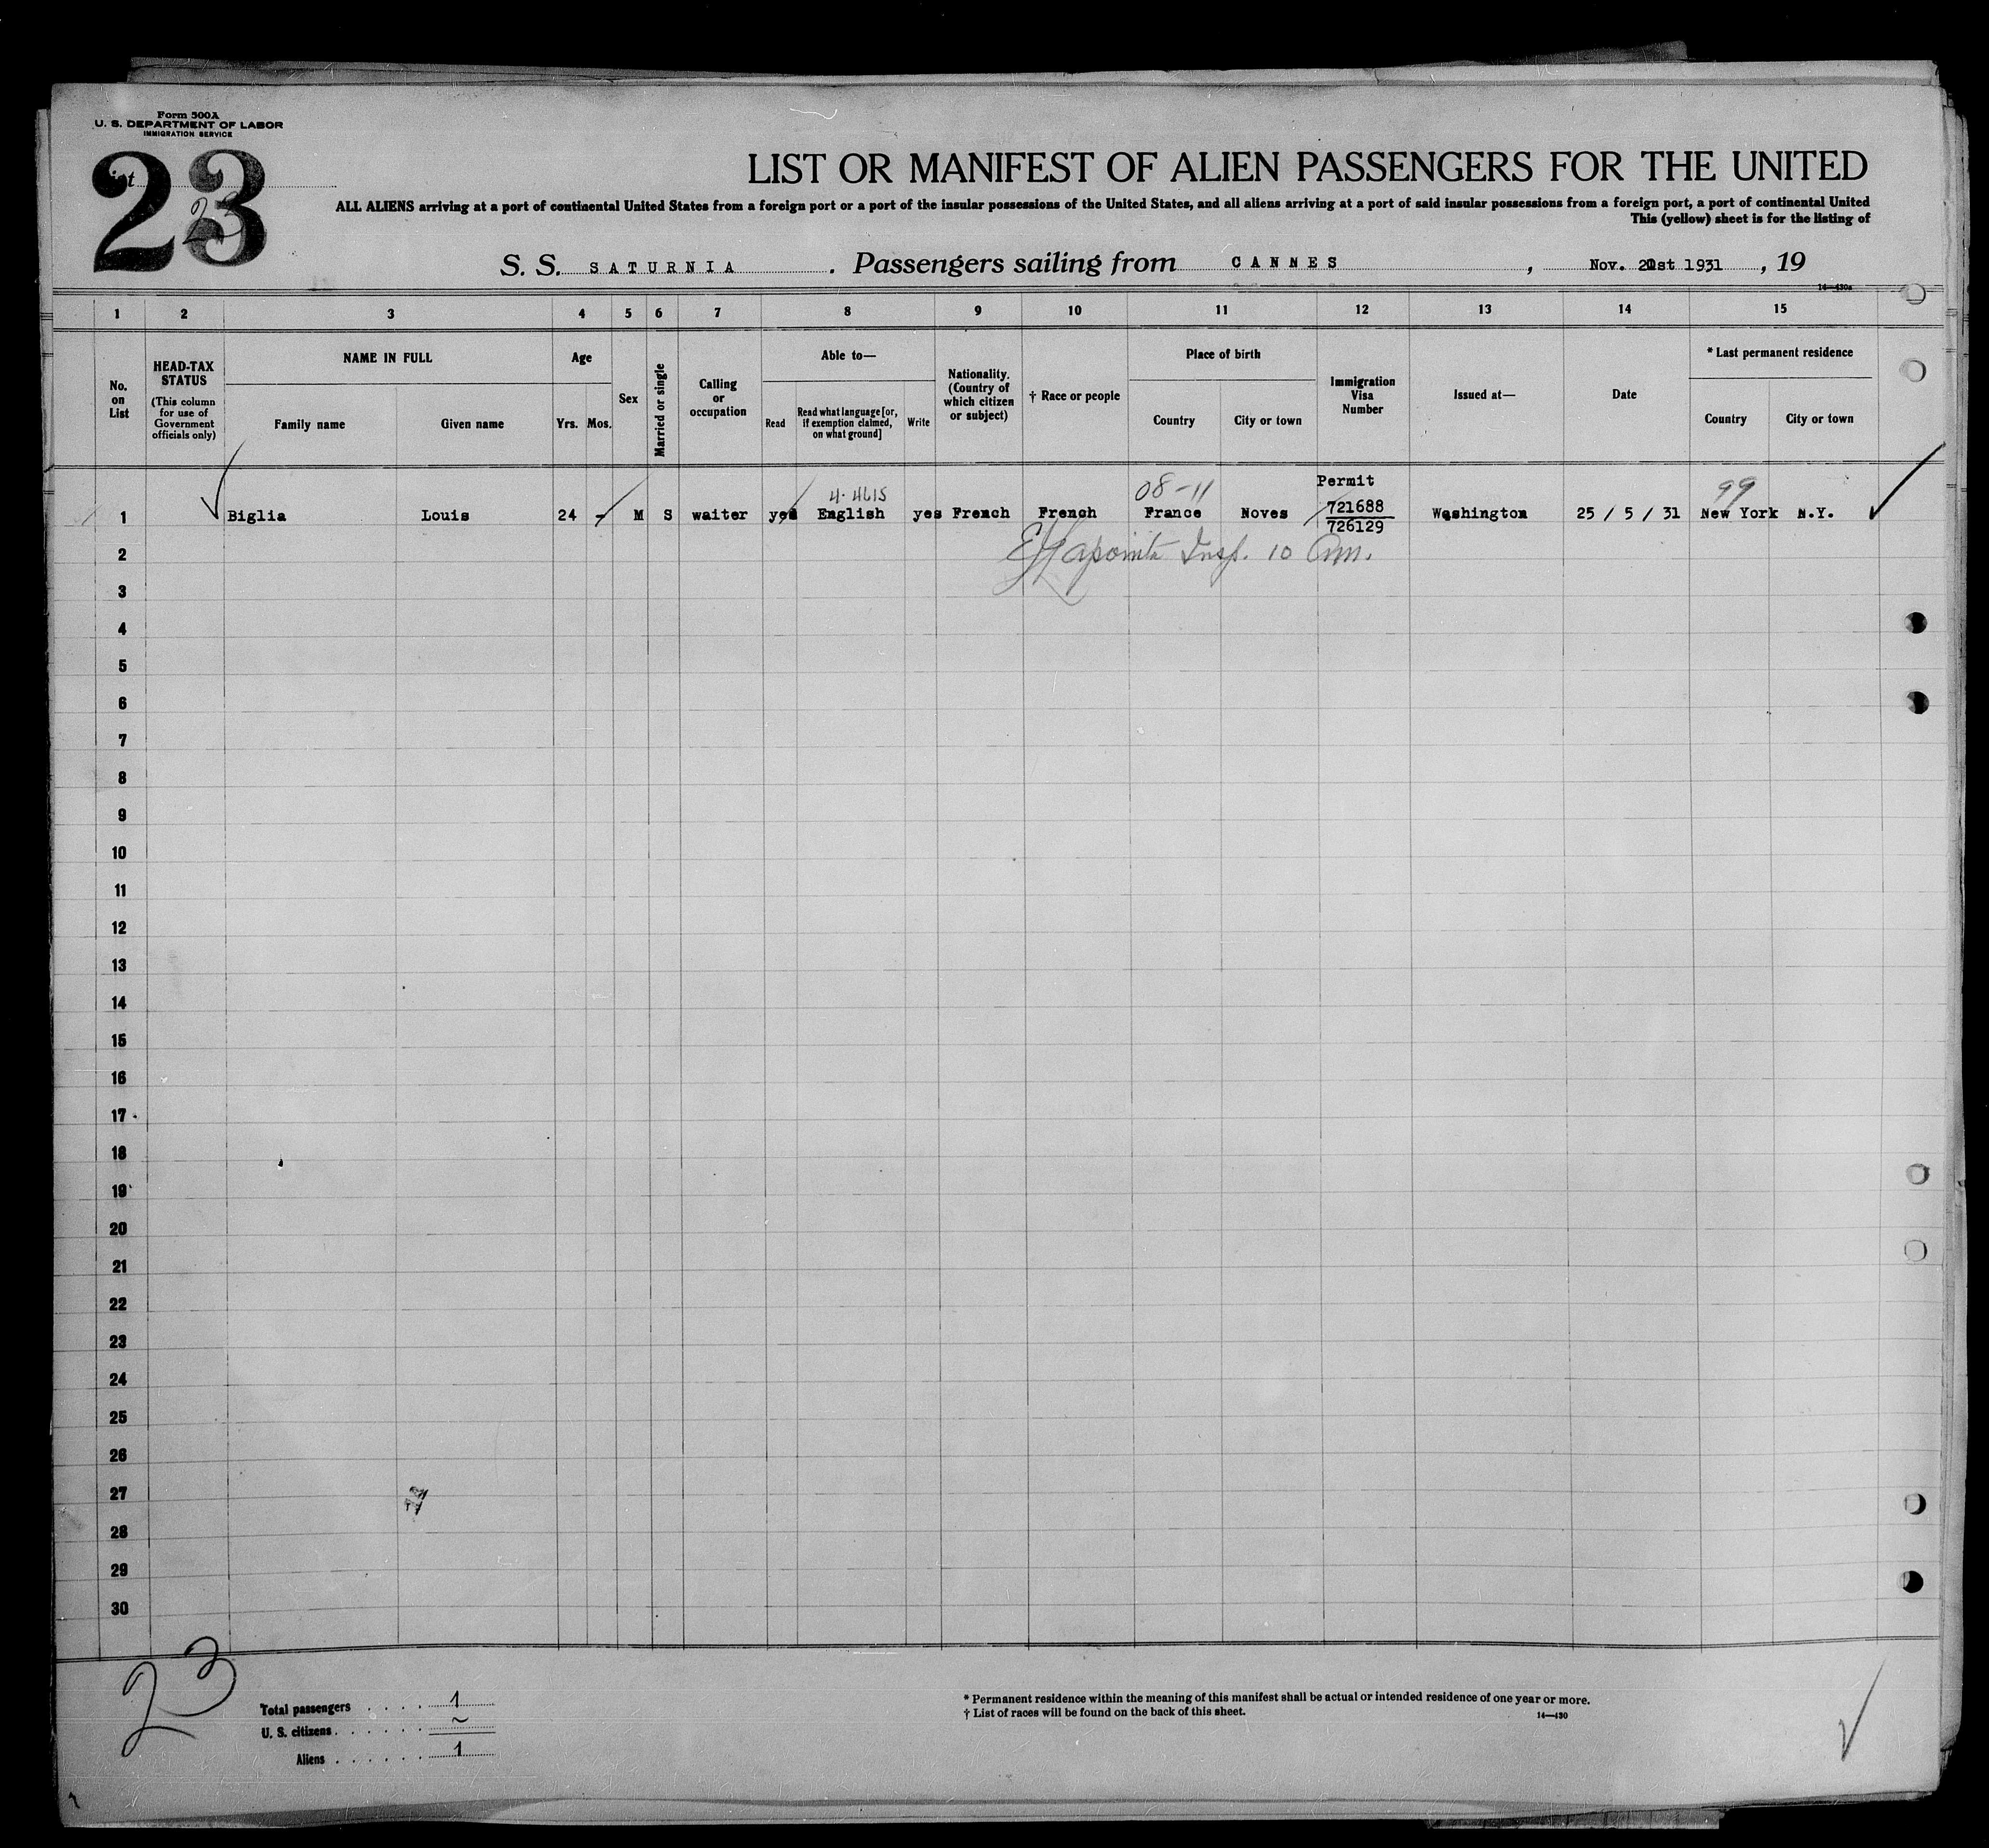 Form 500A
U. S. DEPARTMENT OF LABOR
IMMIGRATION SERVICE
23
23
LIST OR MANIFEST OF ALIEN PASSENGERS FOR THE UNITED
ALL ALIENS arriving at a port of continental United States from a foreign port or a port of the insular possessions of the United States, and all aliens arriving at a port of said insular possessions from a foreign port, a port of continental United
This (yellow) sheet is for the listing of
S. S. SATURNIA. Passengers sailing from CANNES, Nov. 21st 1931, 19
14—430a
1 2 3 4 5 6 7 8 9 10 11 12 13 14 15
No. on List
HEAD-TAX STATUS (This column for use of Government officials only)
NAME IN FULL
Family name Given name
Age
Yrs. Mos.
Sex
Married or single
Calling or occupation
Able to—
Read Read what language [or, if exemption claimed, on what ground] Write
Nationality. (Country of which citizen or subject)
† Race or people
Place of birth
Country City or town
Immigration Visa Number
Issued at—
Date
* Last permanent residence
Country City or town
Permit
4-4615 08-11 99
1 Biglia Louis 24 - M S waiter yes English yes French French France Noves 721688 Washington 25 / 5 / 31 New York N.Y.
726129
2 Lapointe Insp. 10 Am.
3
4
5
6
7
8
9
10
11
12
13
14
15
16
17
18
19
20
21
22
23
24
25
26
27
28
29
30
23
Total passengers . . . . . 1
U. S. citizens . . . . . . ~
Aliens . . . . . . 1
* Permanent residence within the meaning of this manifest shall be actual or intended residence of one year or more.
† List of races will be found on the back of this sheet.
14—430